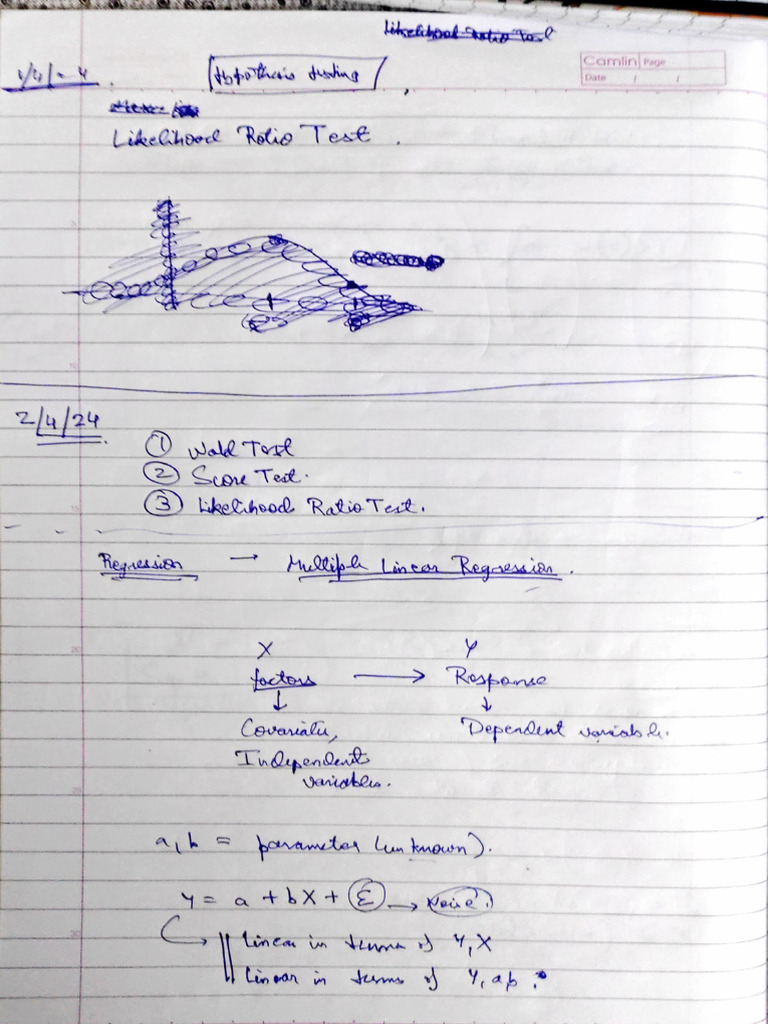 Likelihood Ratio Test
Camlin Page
Date / /
1/4/24.
Hypothesis testing
Likelihood Ratio Test.
2/4/24
① Wald Test
② Score Test.
③ Likelihood Ratio Test.
Regression → Multiple Linear Regression.
X Y
factors → Response
↓ ↓
Covariates, Dependent variable.
Independent
variables.
a, b = parameter (unknown).
Y = a + bX + ε → Noise.
linear in terms of Y, X
linear in terms of Y, a, b.